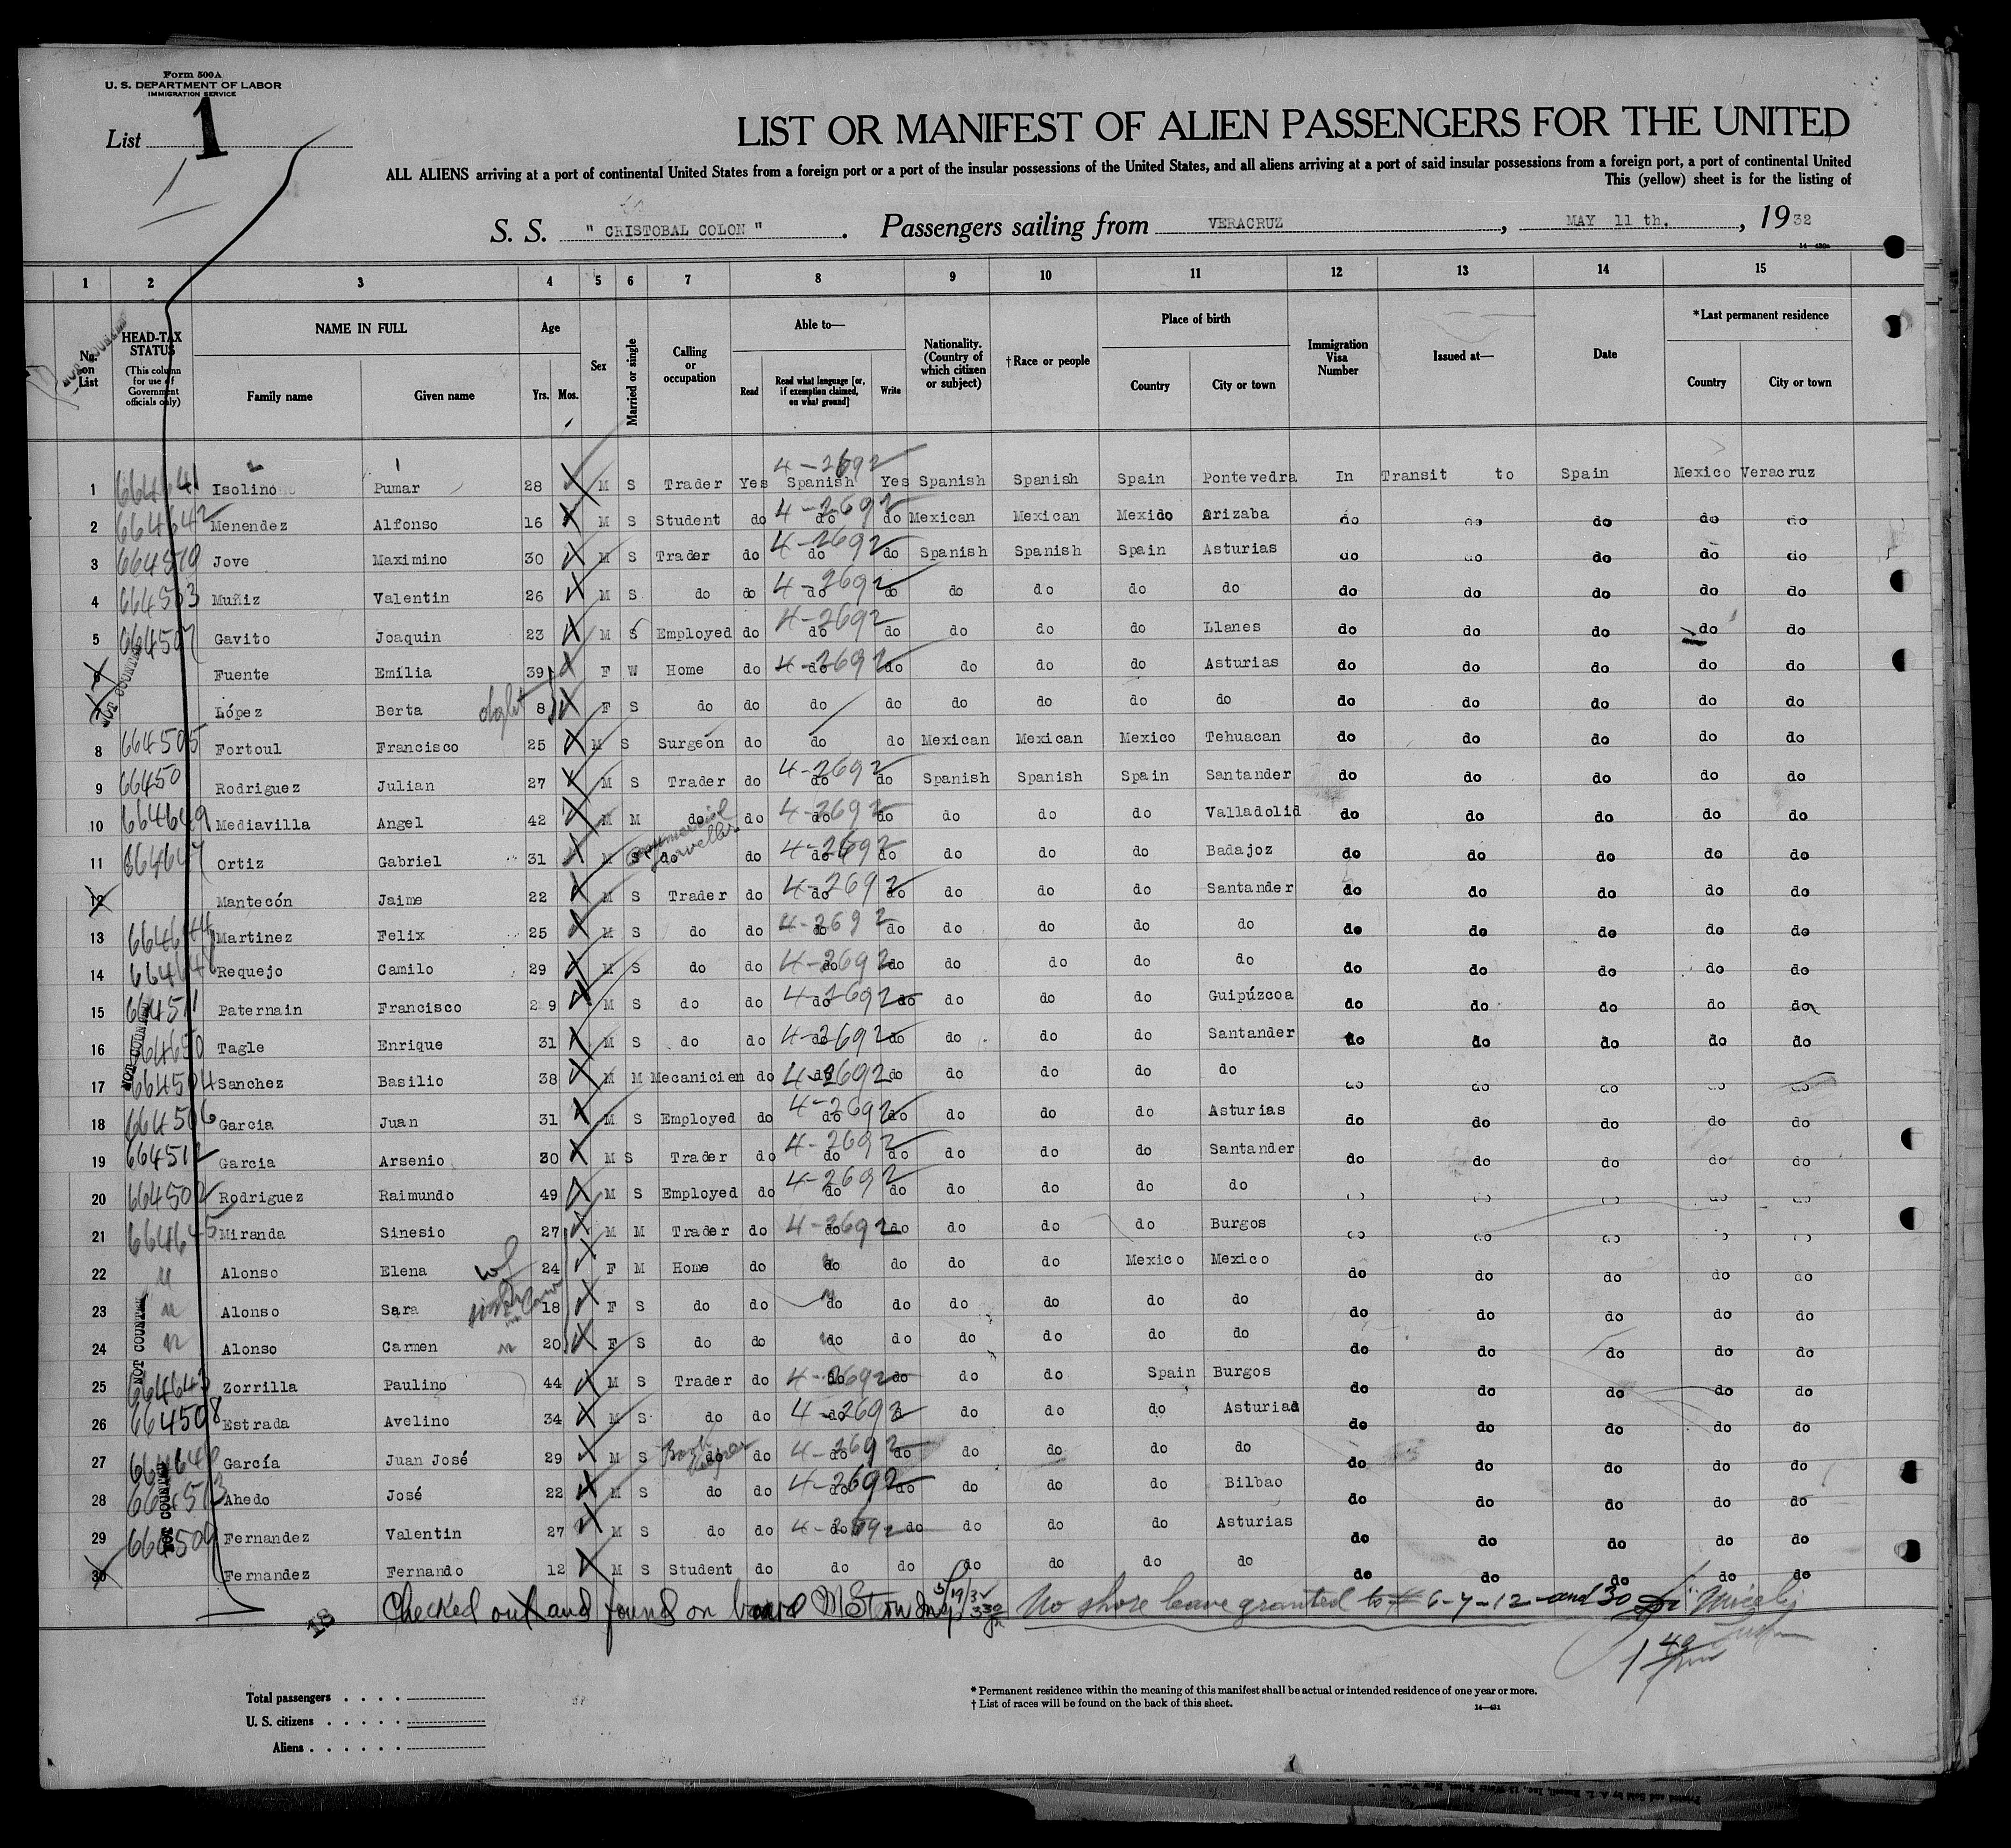 Form 500A
U. S. DEPARTMENT OF LABOR
IMMIGRATION SERVICE
List 1
LIST OR MANIFEST OF ALIEN PASSENGERS FOR THE UNITED
ALL ALIENS arriving at a port of continental United States from a foreign port or a port of the insular possessions of the United States, and all aliens arriving at a port of said insular possessions from a foreign port, a port of continental United
This (yellow) sheet is for the listing of
S. S. " CRISTOBAL COLON " . Passengers sailing from VERACRUZ , MAY 11 th. , 1932
1 2 3 4 5 6 7 8 9 10 11 12 13 14 15
No. on List HEAD-TAX STATUS (This column for use of Government officials only) NAME IN FULL Family name Given name Age Yrs. Mos. Sex Married or single Calling or occupation Able to— Read Read what language [or, if exemption claimed, on what ground] Write Nationality. (Country of which citizen or subject) †Race or people Place of birth Country City or town Immigration Visa Number Issued at— Date *Last permanent residence Country City or town
1 664641 Isolino Pumar 28 M S Trader Yes 4-2692 Spanish Yes Spanish Spanish Spain Pontevedra In Transit to Spain Mexico Veracruz
2 664642 Menendez Alfonso 16 M S Student do 4-2692 do do Mexican Mexican Mexido Orizaba do do do do do
3 664510 Jove Maximino 30 M S Trader do 4-2692 do do Spanish Spanish Spain Asturias do do do do do
4 664503 Muñiz Valentin 26 M S do do 4-2692 do do do do do do do do do do do
5 664507 Gavito Joaquin 23 M S Employed do 4-2692 do do do do do Llanes do do do do do
6 Fuente Emilia 39 F W Home do 4-2692 do do do do do Asturias do do do do do
7 López Berta 8 F S do do do do do do do do do do do do do
8 664505 Fortoul Francisco 25 M S Surgeon do do do Mexican Mexican Mexico Tehuacan do do do do do
9 66450 Rodriguez Julian 27 M S Trader do 4-2692 do do Spanish Spanish Spain Santander do do do do do
10 664649 Mediavilla Angel 42 M M do do 4-2692 do do do do do Valladolid do do do do do
11 664647 Ortiz Gabriel 31 M S do Commercial traveller do 4-2692 do do do do do Badajoz do do do do do
12 Mantecón Jaime 22 M S Trader do 4-2692 do do do do do Santander do do do do do
13 664644 Martinez Felix 25 M S do do 4-2692 do do do do do do do do do do do
14 Requejo Camilo 29 M S do do 4-2692 do do do do do do do do do do do
15 664511 Paternain Francisco 29 M S do do 4-2692 do do do do do Guipúzcoa do do do do do
16 664650 Tagle Enrique 31 M S do do 4-2692 do do do do do Santander do do do do do
17 664504 Sanchez Basilio 38 M M Mecanicien do 4-2692 do do do do do do do do do do do
18 664506 Garcia Juan 31 M S Employed do 4-2692 do do do do do Asturias do do do do do
19 664512 Garcia Arsenio 30 M S Trader do 4-2692 do do do do do Santander do do do do do
20 664502 Rodriguez Raimundo 49 M S Employed do 4-2692 do do do do do do do do do do do
21 664645 Miranda Sinesio 27 M M Trader do 4-2692 do do do do do Burgos do do do do do
22 " Alonso Elena wf 24 F M Home do do do do do Mexico Mexico do do do do do
23 " Alonso Sara sister in law 18 F S do do do do do do do do do do do do do
24 " Alonso Carmen " 20 F S do do do do do do do do do do do do do
25 664643 Zorrilla Paulino 44 M S Trader do 4-2692 do do do do Spain Burgos do do do do do
26 664508 Estrada Avelino 34 M S do do 4-2692 do do do do do Asturias do do do do do
27 García Juan José 29 M S do Book keeper do 4-2692 do do do do do do do do do do do
28 664513 Ahedo José 22 M S do do 4-2692 do do do do do Bilbao do do do do do
29 664509 Fernandez Valentin 27 M S do do 4-2692 do do do do do Asturias do do do do do
30 Fernandez Fernando 12 M S Student do do do do do do do do do do do do
NOT COUNTED
NOT COUNTED
NOT COUNTED
NOT COUNTED
Checked out and found on board No shore leave granted to # 6-7-12-and 30
Total passengers
U. S. citizens
Aliens
* Permanent residence within the meaning of this manifest shall be actual or intended residence of one year or more.
† List of races will be found on the back of this sheet.
14—421